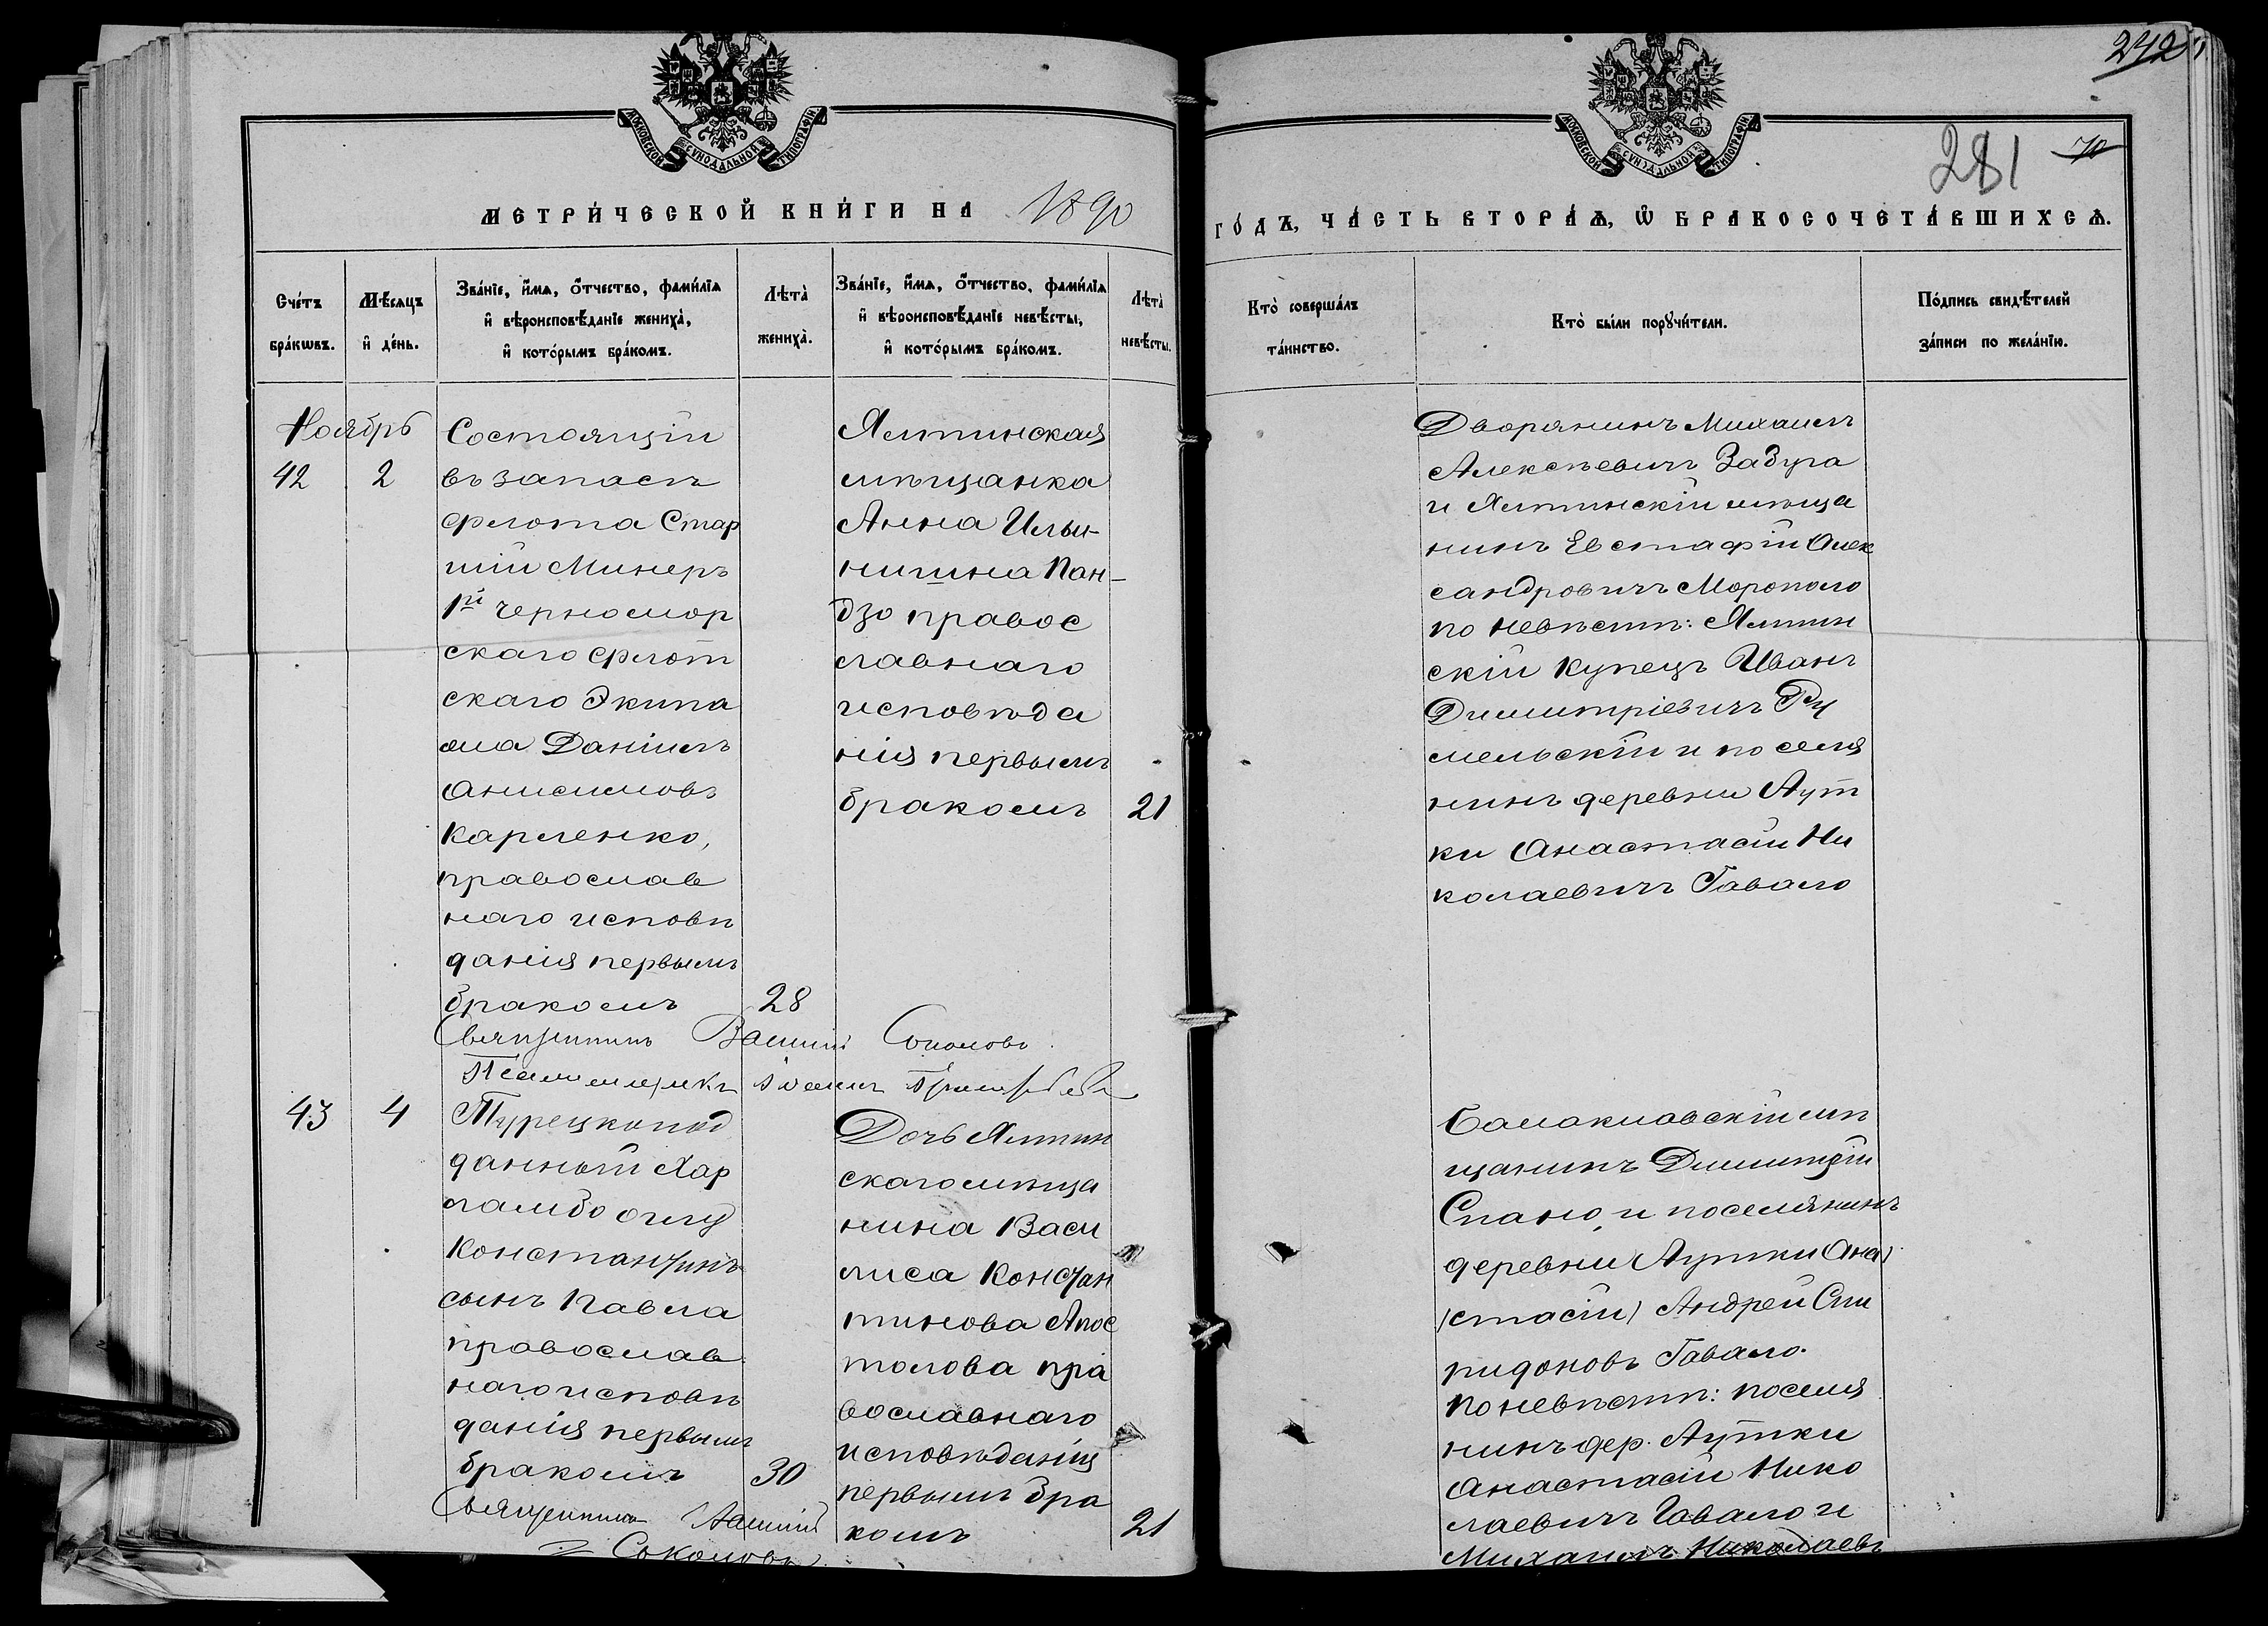 242
281
70
МОСКОВСКОЙ СѴНОДАЛЬНОЙ ТИПОГРАФІИ
МОСКОВСКОЙ СѴНОДАЛЬНОЙ ТИПОГРАФІИ
МЕТРИ́ЧЕСКОЙ КНИ́ГИ НА 1890
ГО́ДЪ, ЧА́СТЬ ВТОРА́Ѧ, Ѡ҆ БРАКОСОЧЕТА́ВШИХСѦ.
Сче́тъ
бра́кѡвъ.
Мѣ́сяцъ
и҆ де́нь.
Зва́нїе, и҆́мѧ, ѻ҆́тчество, фами́лїѧ
и҆ вѣроисповѣ́данїе жениха̀,
и҆ кото́рымъ бра́комъ.
Лѣта̀
жениха̀.
Зва́нїе, и҆́мѧ, ѻ҆́тчество, фами́лїѧ
и҆ вѣроисповѣ́данїе невѣ́сты,
и҆ кото́рымъ бра́комъ.
Лѣта̀
невѣ́сты.
Кто̀ соверша́лъ
та́инство.
Кто̀ бы́ли порꙋчи́тели.
По́дпись свидѣ́телей
за́писи по жела́нїю.
Ноябрь
42
2
Состоящій
въ запасѣ
флота Стар
шій Минеръ
1й Черномор
скаго Флот
скаго Экипа
жа Даніилъ
Анисимовъ
Карпенко,
православ
наго исповѣ
данія первымъ
бракомъ
28
Ялтинская
мѣщанка
Анна Ильи-
нишна Пан-
дзо правос
лавнаго
исповѣда
нія первымъ
бракомъ
21
Дворянинъ Михаилъ
Алексѣевичъ Задура
и Ялтинскій мѣща
нинъ Евстафій Алек
сандровичъ Морополо
по невѣстѣ: Ялтин
скій купецъ Иванъ
Димитріевичъ Ру
мельскій и поселя
нинъ деревни Аут
ки Анастасій Ни
колаевичъ Гавало
Священникъ Василій Соколовъ
Псаломщикъ
43
4
Турецкопод
данный Хар
лампо оглу
Константинъ
сынъ Павла
православ
наго исповѣ
данія первымъ
бракомъ
30
Дочь Ялтин
скаго мѣща
нина Васи
лиса Констан
тинова Апос
толова пра
вославнаго
исповѣданія
первымъ бра
комъ
21
Балаклавскій мѣ
щанинъ Димитрій
Спано, и поселянинъ
деревни Аутки (Ана)
(стасій) Андрей Спи
ридоновъ Гавало.
По невѣстѣ: поселя
нинъ дер. Аутки
Анастасій Нико
лаевичъ Гавало и
Михаилъ Николаевъ
Священникъ Василій
Соколовъ